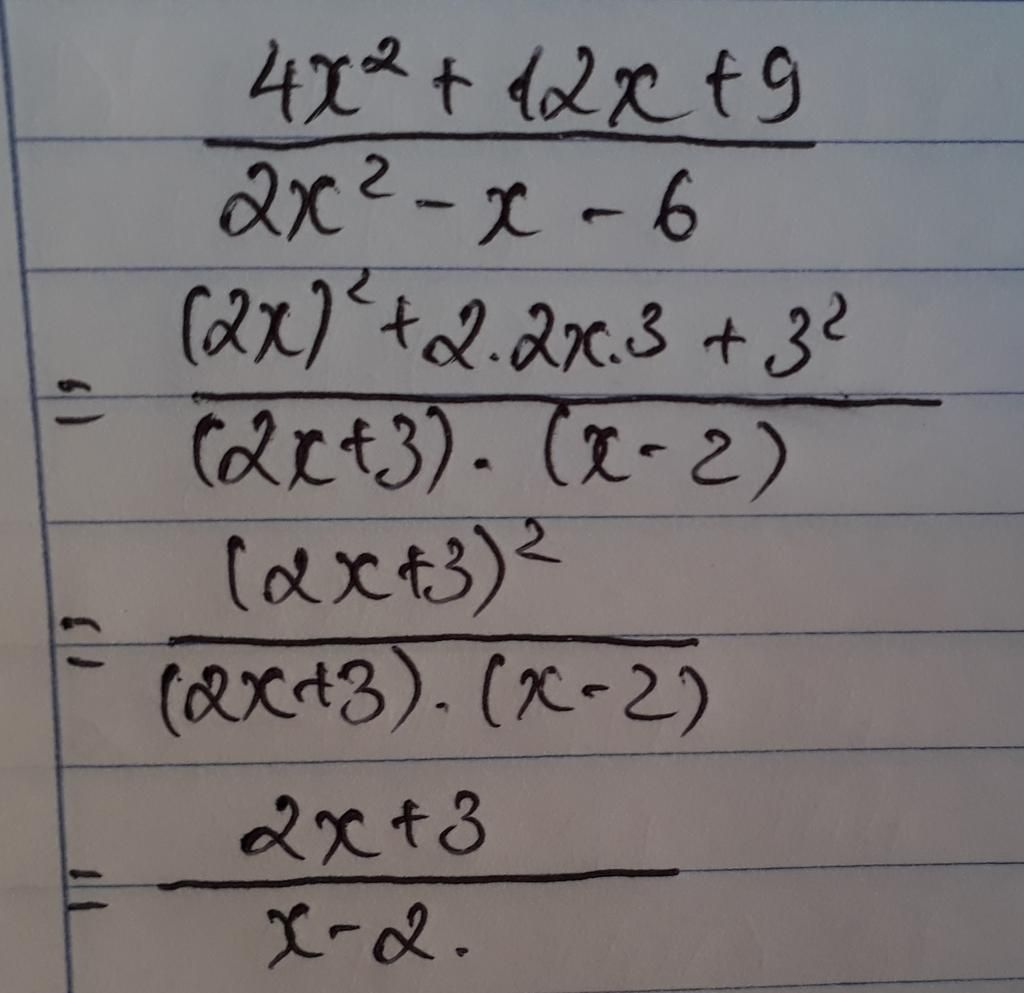 4x² + 12x + 9
2x² - x - 6
(2x)² + 2.2x.3 + 3²
=
(2x+3). (x-2)
(2x+3)²
=
(2x+3). (x-2)
2x+3
=
x-2.